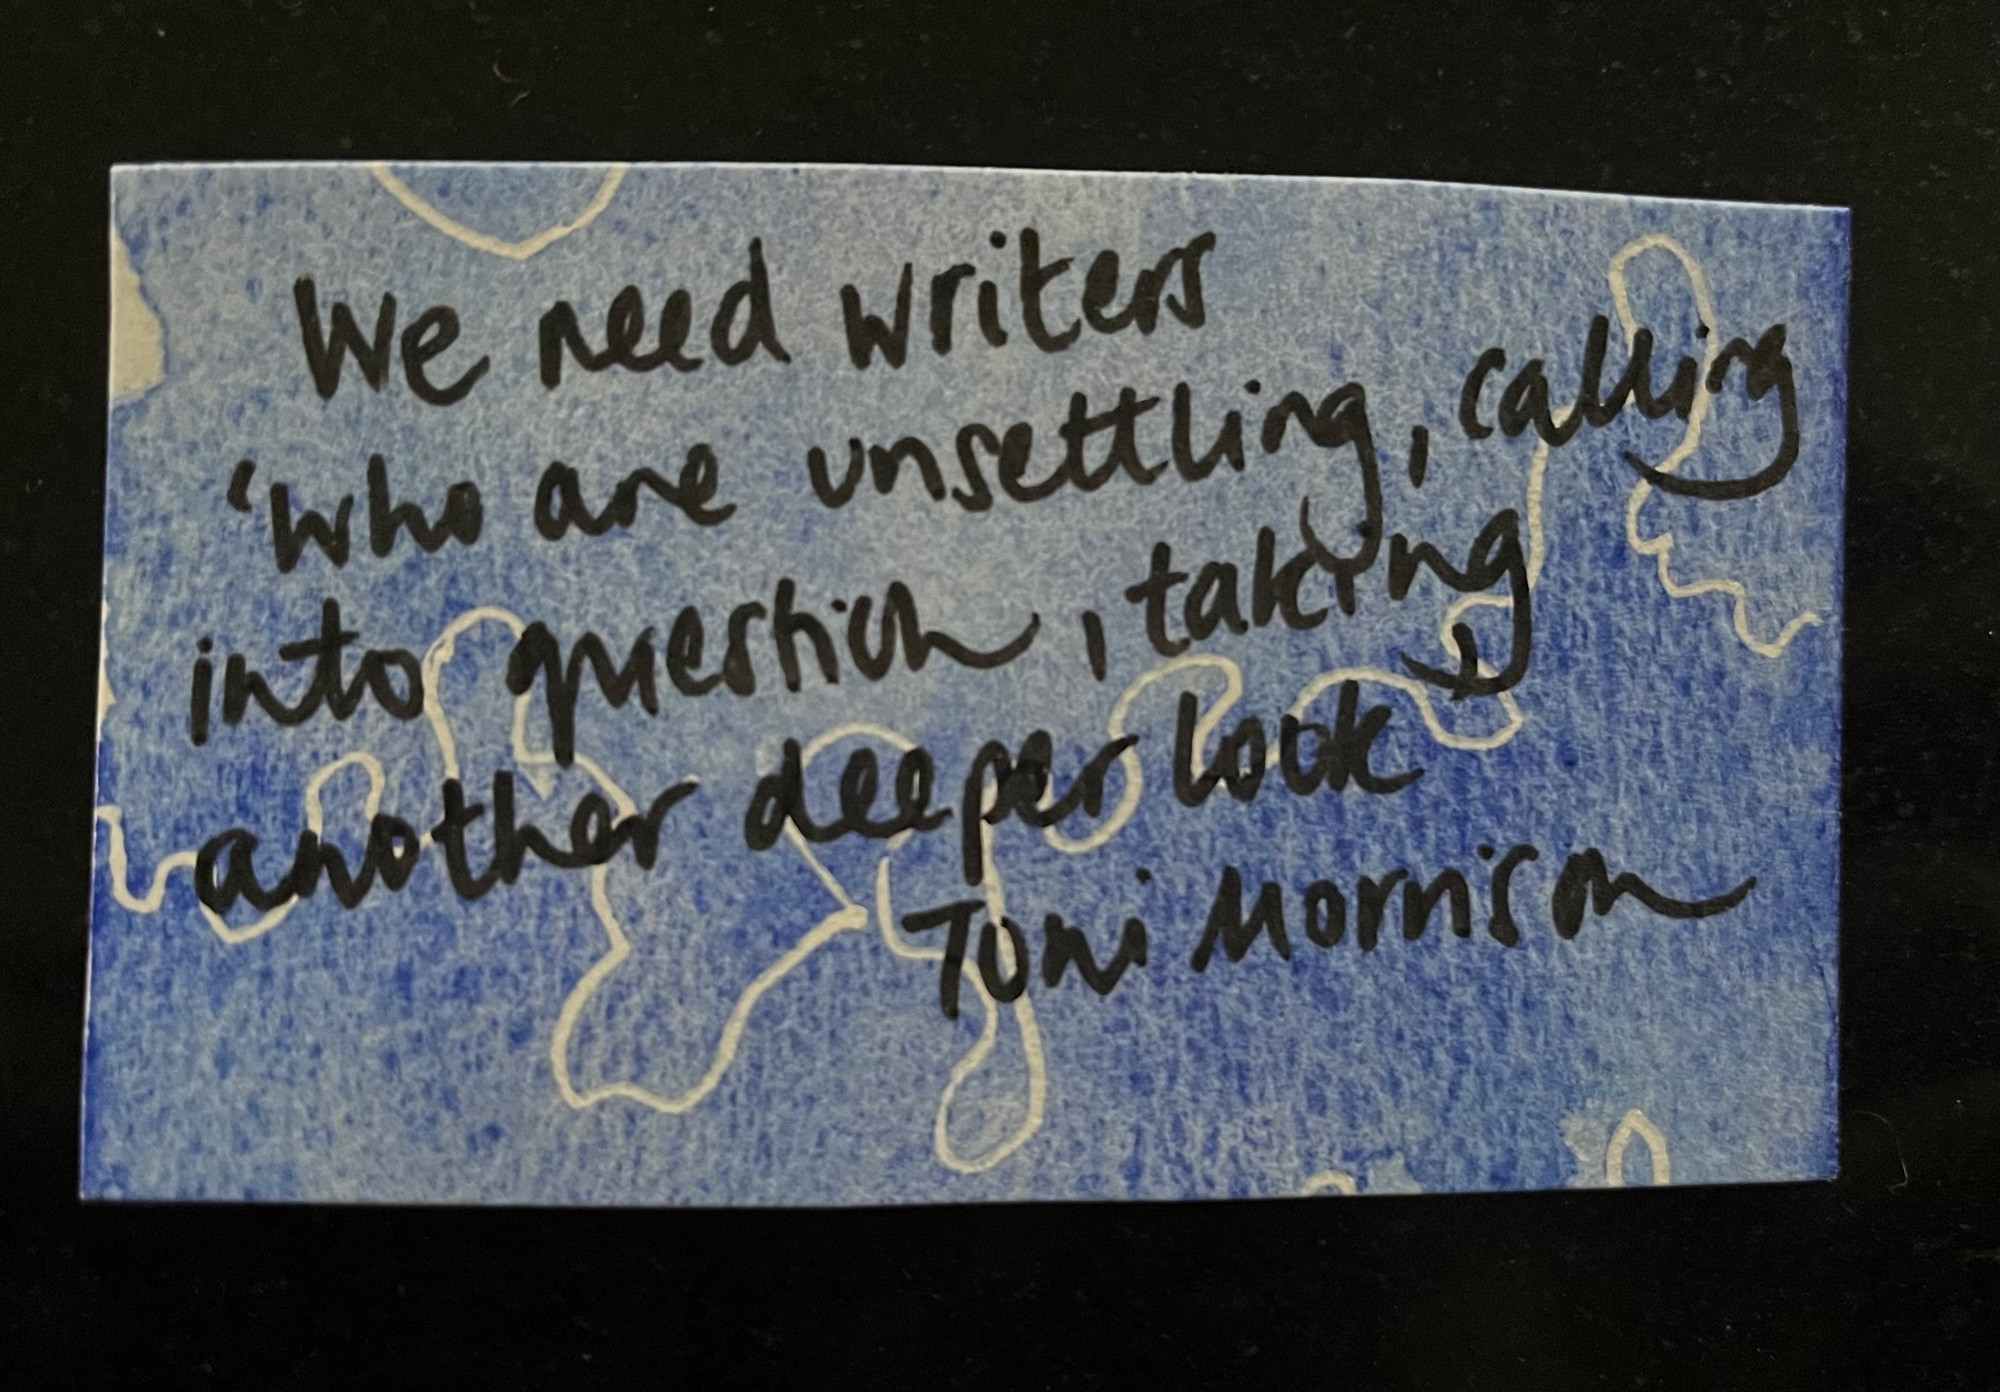 We need writers
'who are unsettling, calling
into question, taking
another deeper look
Toni Morrison